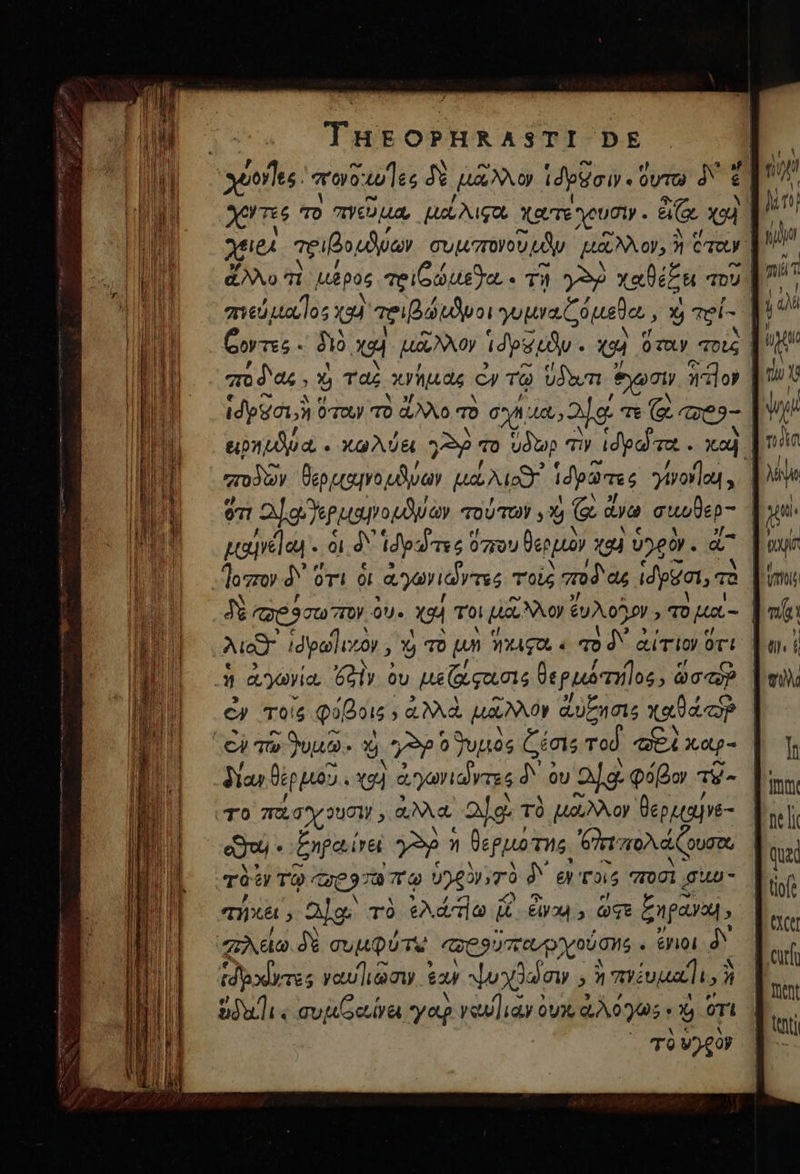 THEOPHRASTI DE
χύοντες. πονοῦντες δὲ μᾶλλον ἱδροῦσιν. οὕτω δ' ἔ
χοντες τὸ πνεῦμα, μάλιστα κατέχουσιν. καὶ
χειρὶ τριβομένων συμπονοῦμεν μᾶλλον, ἢ ὅταν
ἄλλο τὶ μέρος τριβώμεθα. τῇ γὰρ καθέξει τοῦ
πνεύματος καὶ τριβόμενοι γυμναζόμεθα, καὶ τρί-
βοντες. διὸ καὶ μᾶλλον ἱδροῦμεν. καὶ ὅταν τοὺς
πόδας, καὶ τὰς κνήμας ἐν τῷ ὕδατι ἔχωσιν ἧττον
ἱδροῦσι, ἢ ὅταν τὸ ἄλλο τὸ σχῆμα, διά τε τὰ προ-
ειρημένα. κωλύει γὰρ τὸ ὕδωρ τὴν ἱδρῶτα. καὶ
ποδῶν θερμαινομένων μάλισθ' ἱδρῶτες γίνονται,
ὅτι διαθερμαινομένων τούτων, καὶ τὰ ἄνω συνθερ-
μαίνεται. οἱ δ' ἱδρῶτες ὅπου θερμὸν καὶ ὑγρόν. ἄ-
τοπον δ' ὅτι οἱ ἀγωνιῶντες τοὺς πόδας ἱδροῦσι, τὸ
δὲ πρόσωπον οὔ. καὶ τοι μᾶλλον εὔλογον, τὸ μά-
λισθ' ἱδρωτικὸν, καὶ τὸ μὴ ἥκιστα. τὸ δ' αἴτιον ὅτι
ἡ ἀγωνία ἐστὶν οὐ μετάστασις θερμότητος, ὥσπερ
ἐν τοῖς φόβοις, ἀλλὰ μᾶλλον αὔξησις καθάπερ
ἐν τῷ θυμῷ. καὶ γὰρ ὁ θυμὸς ζέσις τοῦ περὶ καρ-
δίαν θερμοῦ. καὶ ἀγωνιῶντες δ' οὐ διὰ φόβον τοῦ-
το πάσχουσιν, ἀλλὰ διὰ τὸ μᾶλλον θερμαίνε-
σθαι. ξηραίνει γὰρ ἡ θερμότης ἐπιπολάζουσα
τὸ ἐν τῷ προσώπῳ ὑγρὸν, τὸ δ' ἐν τοῖς ποσὶ συν-
τήκει, διὰ τὸ ἐλάττω μὲν εἶναι, ὥστε ξηρᾶναι,
πλείω δὲ συμφύτου προϋπαρχούσης. ἔνιοι δ'
ἱδρῶντες ναυτιῶσιν ἐὰν ψυχθῶσιν, ἢ πνεύματι, ἢ
ὕδατι. συμβαίνει γὰρ ναυτιᾶν οὐκ ἀλόγως. καὶ ὅτι
τὸ ὑγρὸν
In
imme
ne lic
quad
tiose
excer
cursu
ment
tenti